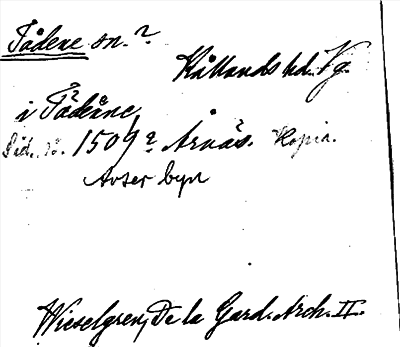 Tådene sn.?
Kållands hd. Vg.
i Tådåne
1509? Årnäs. Kopia.
Avser byn
Wieselgren, De la Gard. Arch. II.